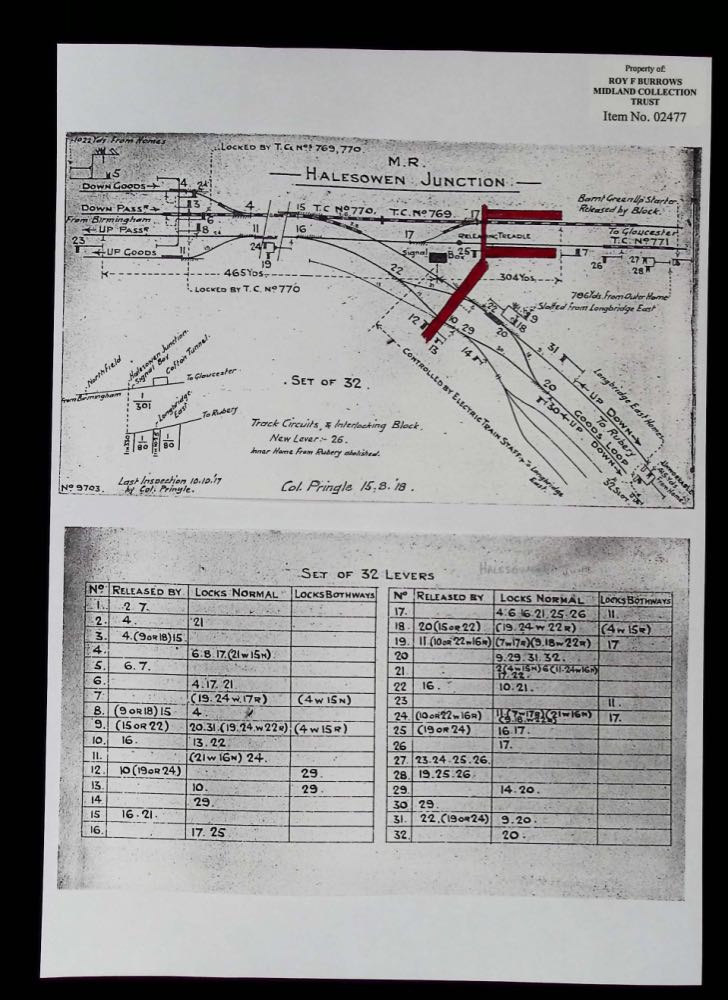 Property of:
ROY F BURROWS
MIDLAND COLLECTION
TRUST
Item No. 02477
1022 Yds. From Homes
LOCKED BY T.C. Nos 769, 770.
M.R.
HALESOWEN JUNCTION
DOWN GOODS
DOWN PASSR
From Birmingham
UP PASSR
UP GOODS
15 T.C. No 770. T.C. No 769.
Barnt Green Up Starter
Released by Block.
To Gloucester
T.C. No 771
RELEASING TREADLE
Signal Box
465 Yds.
304 Yds.
LOCKED BY T.C. No 770
786 Yds. From Outer Home
Slotted From Longbridge East
Northfield
Halesowen Junction
Signal Box
Cofton Tunnel.
From Birmingham
To Gloucester
1
301
Longbridge
East
To Rubery
1
80
1
80
SET OF 32.
Track Circuits, & Interlocking Block.
New Lever:- 26.
Inner Home From Rubery abolished.
CONTROLLED BY ELECTRIC TRAIN STAFF
Longbridge
East.
Longbridge East Homes
UP DOWN
To Rubery
GOODS LOOP
UP DOWN
32 SLOT.
No 9703.
Last Inspection 10.10.'17
by Col. Pringle.
Col. Pringle 15.8.'18.
SET OF 32 LEVERS
No RELEASED BY LOCKS NORMAL LOCKS BOTHWAYS
1. 2 7.
2. 4. 21
3. 4.(9 OR 18) 15.
4. 6.8.17.(21 W 15 N)
5. 6.7.
6. 4.17.21
7. (19.24 W 17 R) (4 W 15 N)
8. (9 OR 18) 15 4.
9. (15 OR 22) 20.31.(19.24 W 22 R) (4 W 15 R)
10. 16. 13.22
11. (21 W 16 N) 24.
12. 10 (19 OR 24) 29.
13. 10. 29.
14 29.
15 16.21.
16. 17. 25
No RELEASED BY LOCKS NORMAL LOCKS BOTHWAYS
17. 4.6.16.21.25.26 11.
18. 20 (15 OR 22) (19.24 W 22 R) (4 W 15 R)
19. 11.(10 OR 22 W 16 N) (7 W 17 R)(9.18 W 22 R) 17
20 9.29.31.32.
21 2(4 W 15 N) 6 (11.24 W 16 N)
17.22.
22 16. 10.21.
23 11.
24 (10 OR 22 W 16 R) 17.
25 (19 OR 24) 16.17.
26 17.
27. 23.24.25.26.
28. 19.25.26.
29. 14.20.
30 29.
31. 22.(19 OR 24) 9.20.
32. 20.